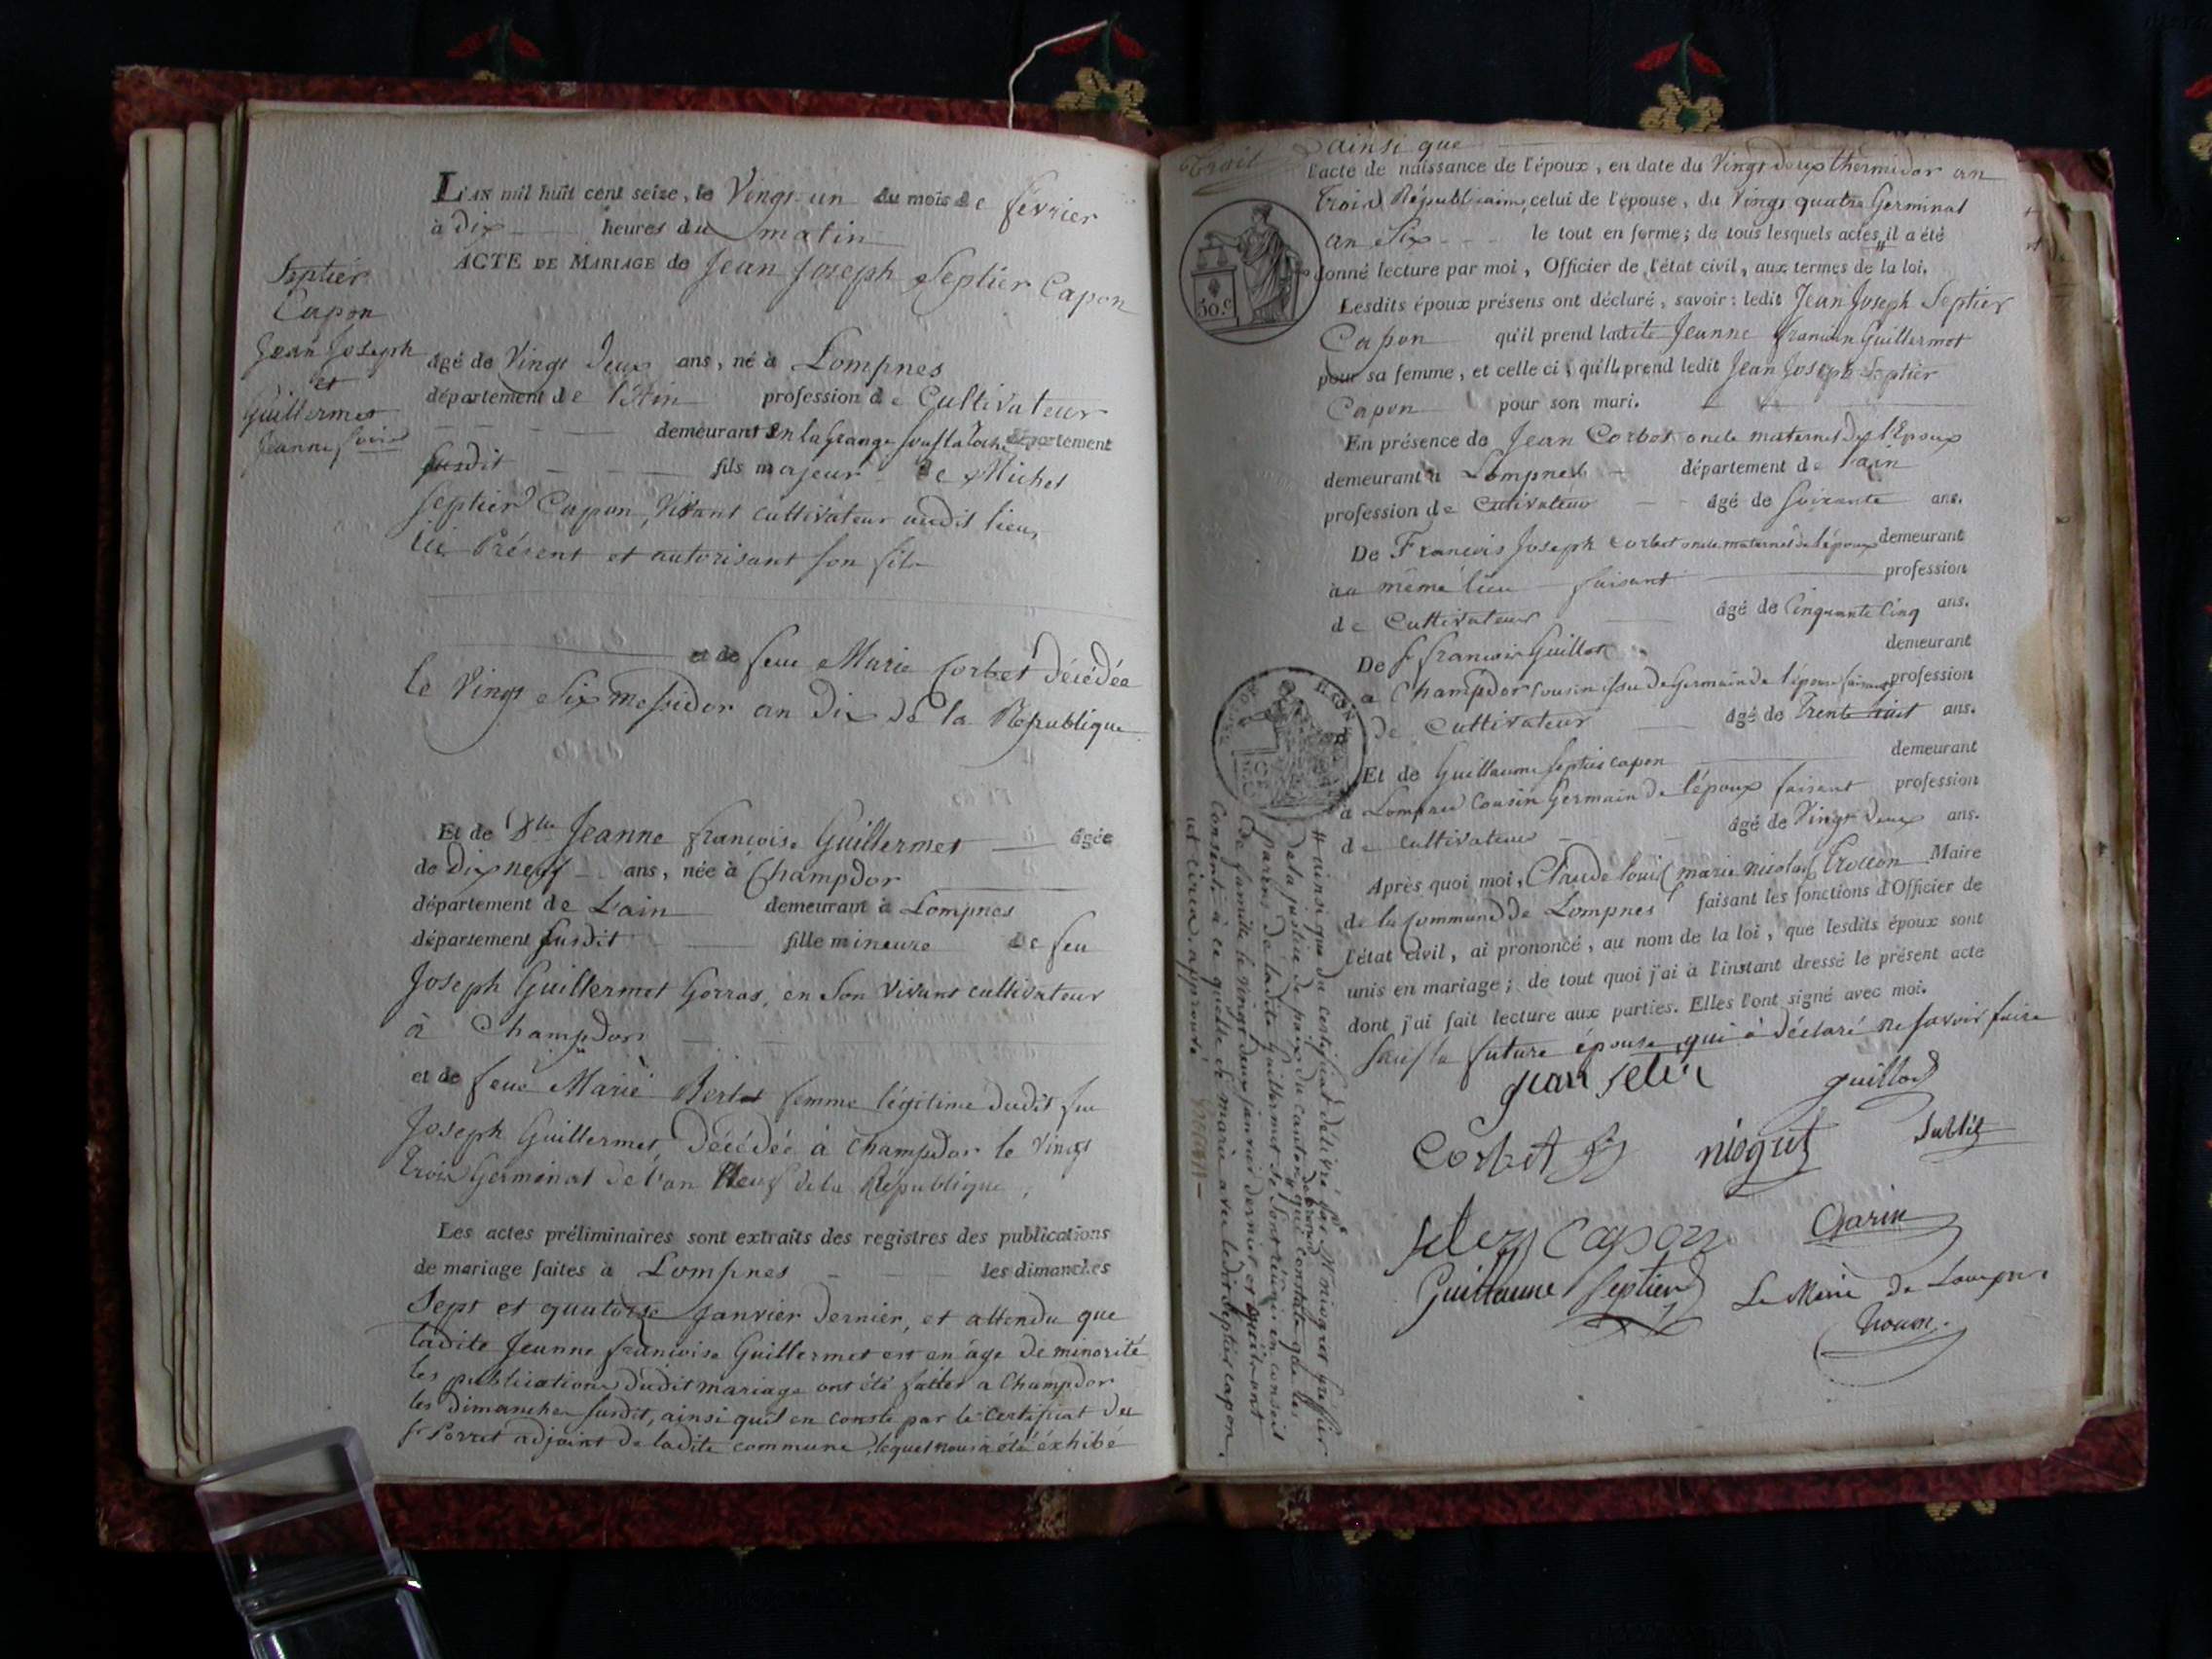 Septier
Capon
Jean Joseph
et
Guillermet
Jeanne fçoise
L'AN mil huit cent seize, le Vingt-un du mois de février
à dix heures du matin
ACTE DE MARIAGE de Jean Joseph Septier Capon
âgé de Vingt deux ans, né à Lompnes
département de l'Ain profession de Cultivateur
demeurant En la grange sous la Roche département
susdit fils majeur de Michel
Septier Capon, Vivant cultivateur audit lieu,
ici Présent et autorisant son fils
et de feue Marie Corbet décédée
le Vingt Six messidor an Dix de la République
Et de Dlle Jeanne françoise Guillermet âgée
de Dix neuf ans, née à Champdor
département de L'ain demeurant à Lompnes
département susdit fille mineure de feu
Joseph Guillermet Gorras, en Son Vivant cultivateur
à Champdor
et de feue Marie Bertet femme légitime dudit feu
Joseph Guillermet, Décédée à Champdor le Vingt
trois Germinal de l'an Neuf de la République,
Les actes préliminaires sont extraits des registres des publications
de mariage faites à Lompnes les dimanches
Sept et quatorze Janvier dernier, et attendu que
ladite Jeanne françoise Guillermet est en âge de minorité
les publications dudit mariage ont été faites a Champdor
les dimanches susdit, ainsi qu'il en conste par le certificat du
Sr Porret adjoint de ladite commune, lequel nous a été exhibé
ainsi que
l'acte de naissance de l'époux, en date du Vingt doux thermidor an
trois Républicain, celui de l'épouse, du Vingt quatre Germinal
an Six le tout en forme; de tous lesquels actes # il a été
donné lecture par moi, Officier de l'état civil, aux termes de la loi.
Lesdits époux présens ont déclaré, savoir: ledit Jean Joseph Septier
Capon qu'il prend ladite Jeanne françoise Guillermet
pour sa femme, et celle ci, qu'elle prend ledit Jean Joseph Septier
Capon pour son mari.
En présence de Jean Corbet oncle maternel de l'Époux
demeurant à Lompnes département de l'ain
profession de Cultivateur âgé de soixante ans.
De François Joseph Corbet oncle maternel de l'époux demeurant
au même lieu faisant profession
de Cultivateur âgé de Cinquante Cinq ans.
De Sr françois Guillot demeurant
a Champdor cousin issu de Germain de l'épouse faisant profession
de Cultivateur âgé de Trente huit ans.
Et de Guillaume Septier capon demeurant
à Lompnes Cousin Germain de l'époux faisant profession
de Cultivateur âgé de Vingt Deux ans.
Après quoi moi, Claude Louis marie nicolas Trocon Maire
de la Commune de Lompnes faisant les fonctions d'Officier de
l'état civil, ai prononcé, au nom de la loi, que lesdits époux sont
unis en mariage; de tout quoi j'ai à l'instant dressé le présent acte
dont j'ai fait lecture aux parties. Elles l'ont signé avec moi.
Sauf la future épouse qui à déclaré ne savoir faire
Jean Setier
guillot
Corbet
Niogret
Sublet
Setier Capon
Garin
Guillaume Septier
Le Maire de Lompnes
Trocon
50.c
# ainsi que du certificat délivré par Mr niogret greffier
de la justice de paix du canton de brenod qui constate que les
parens de ladite guillermet se sont réunis en conseil
de famille le vingt deux janvier dernier et qu'ils ont
Consenti à ce qu'elle se marie avec ledit Septier capon.